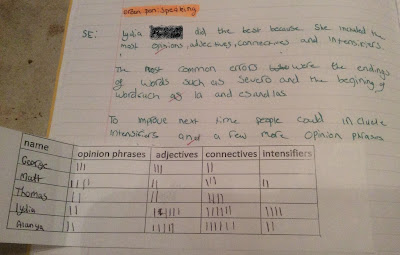 Urban pars: Speaking
SE: Lydia did the best because she included the
most opinions, adjectives, connectives and intensifiers.
The most common errors were the endings
of words such as Severo and the begining of
words such as la and es and las.
To improve next time people could include
intensifiers and a few more opinion phrases
name opinion phrases adjectives connectives intensifiers
George
Matt
Thomas
Lydia
Alanya